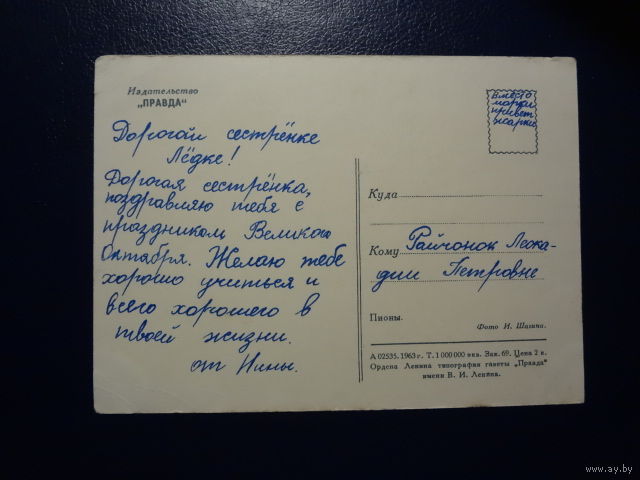 Издательство
„ПРАВДА“
Дорогой сестрёнке
Лёдке!
Дорогая сестрёнка,
поздравляю тебя с
праздником Великого
Октября. Желаю тебе
хорошо учиться и
всего хорошего в
твоей жизни.
от Нины.
Вместо
марки
привет
жаркий
Куда
Кому Райчонок Леока-
дии Петровне
Пионы.
Фото И. Шагина.
А 02535. 1963 г. Т. 1 000 000 экз. Зак. 69. Цена 2 к.
Ордена Ленина типография газеты „Правда“
имени В. И. Ленина.
www.ay.by